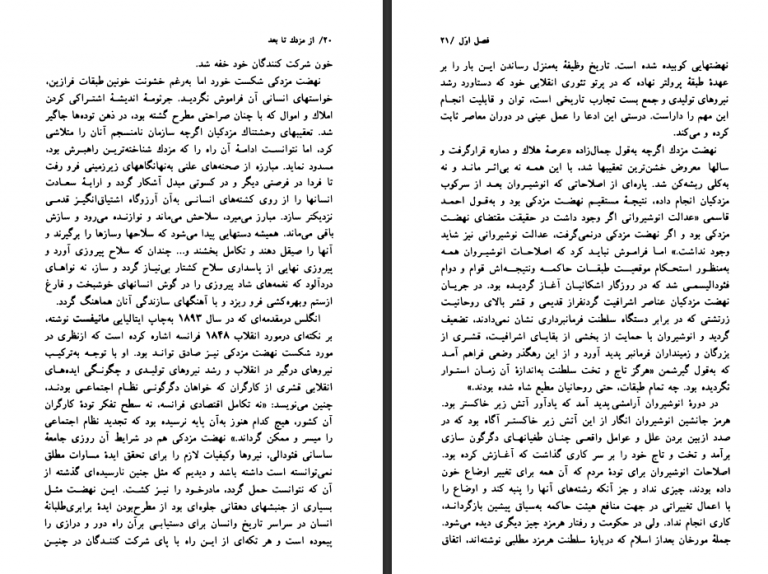 ۲۰/ از مزدك تا بعد
خون شرکت کنندگان خود خفه شد.
نهضت مزدکی شکست خورد اما به‌رغم خشونت خونین طبقات فرازین،
خواستهای انسانی آن فراموش نگردید. جرثومهٔ اندیشهٔ اشتراکی کردن
املاك و اموال که با چنان صراحتی مطرح گشته بود، در ذهن توده‌ها جاگیر
شد. تعقیبهای وحشتناك مزدکیان اگرچه سازمان نامنسجم آنان را متلاشی
کرد، اما نتوانست ادامهٔ آن راه را که مزدك شناخته‌ترین راهبرش بود،
مسدود نماید. مبارزه از صحنه‌های علنی به‌نهانگاههای زیرزمینی فرو رفت
تا فردا در فرصتی دیگر و در کسوتی مبدل آشکار گردد و ارابهٔ سعادت
انسانها را از روی کشته‌های انسانی به‌آن آرزوگاه اشتیاق‌انگیز قدمی
نزدیکتر سازد. مبارز می‌میرد، سلاحش می‌ماند و نوازنده می‌رود و سازش
باقی می‌ماند. همیشه دستهایی پیدا می‌شود که سلاحها وسازها را برگیرند و
آنها را صیقل دهند و تکامل بخشند و... چندان که سلاح پیروزی آورد و
پیروزی نهایی از پاسداری سلاح کشتار بی‌نیاز گردد و ساز، نه نواهای
دردآلود که نغمه‌های شاد پیروزی را در گوش انسانهای خوشبخت و فارغ
ازستم وبهره‌کشی فرو ریزد و با آهنگهای سازندگی آنان هماهنگ گردد.
انگلس درمقدمه‌ای که در سال ۱۸۹۳ به‌چاپ ایتالیایی مانیفست نوشته،
بر نکته‌ای درمورد انقلاب ۱۸۴۸ فرانسه اشاره کرده است که ازنظری در
مورد شکست نهضت مزدکی نیز صادق تواند بود. او با توجه به‌ترکیب
نیروهای درگیر در انقلاب و رشد نیروهای تولیدی و چگونگی ایده‌های
انقلابی قشری از کارگران که خواهان دگرگونی نظام اجتماعی بودند،
چنین می‌نویسد: «نه تکامل اقتصادی فرانسه، نه سطح تفکر تودهٔ کارگران
آن کشور، هیچ کدام هنوز به‌آن پایه نرسیده بود که تجدید نظام اجتماعی
را میسر و ممکن گرداند.» نهضت مزدکی هم در شرایط آن روزی جامعهٔ
ساسانی فئودالی، نیروها وکیفیات لازم را برای تحقق ایدهٔ مساوات مطلق
نمی‌توانسته است داشته باشد و دیدیم که مثل جنین نارسیده‌ای گذشته از
آن که نتوانست حمل گردد، مادرخود را نیز کشت. این نهضت مثل
بسیاری از جنبشهای دهقانی جلوه‌ای بود از مطرح‌بودن ایدهٔ برابری‌طلبانهٔ
انسان در سراسر تاریخ وانسان برای دستیابی برآن راه دور و درازی را
پیموده است و هر تکه‌ای از این راه با پای شرکت کنندگان در چنین
فصل اوّل /۲۱
نهضتهایی کوبیده شده است. تاریخ وظیفهٔ به‌منزل رساندن این بار را بر
عهدهٔ طبقهٔ پرولتر نهاده که در پرتو تئوری انقلابی خود که دستاورد رشد
نیروهای تولیدی و جمع بست تجارب تاریخی است، توان و قابلیت انجام
این مهم را داراست. درستی این ادعا را عمل عینی در دوران معاصر ثابت
کرده و می‌کند.
نهضت مزدك اگرچه به‌قول جمال‌زاده «عرصهٔ هلاك و دمار» قرارگرفت و
سالها معروض خشن‌ترین تعقیبها شد، با این همه نه بی‌اثر ماند و نه
به‌کلی ریشه‌کن شد. پاره‌ای از اصلاحاتی که انوشیروان بعد از سرکوب
مزدکیان انجام داده، نتیجهٔ مستقیم نهضت مزدکی بود و به‌قول احمد
قاسمی «عدالت انوشیروانی اگر وجود داشت در حقیقت مقتضای نهضت
مزدکی بود و اگر نهضت مزدکی درنمی‌گرفت، عدالت نوشیروانی نیز شاید
وجود نداشت.» اما فراموش نباید کرد که اصلاحات انوشیروان همه
به‌منظور استحکام موقعیت طبقات حاکمه ونتیجه‌اش قوام و دوام
فئودالیسمی شد، که در روزگار اشکانیان آغاز گردیده بود. در جریان
نهضت مزدکیان عناصر اشرافیت گردنفراز قدیمی و قشر بالای روحانیت
زرتشتی که در برابر دستگاه سلطنت فرمانبرداری نشان نمی‌دادند، تضعیف
گردید و انوشیروان با حمایت از بخشی از بقایای اشرافیت، قشری از
بزرگان و زمینداران فرمانبر پدید آورد و از این رهگذر وضعی فراهم آمد
که به‌قول گیرشمن «هرگز تاج و تخت سلطنت به‌اندازهٔ آن زمان استوار
نگردیده بود. چه تمام طبقات، حتی روحانیان مطیع شاه شده بودند.»
در دورهٔ انوشیروان آرامشی پدید آمد که یادآور آتش زیر خاکستر بود.
هرمز جانشین انوشیروان انگار از این آتش زیر خاکستر آگاه بود که در
صدد ازبین بردن علل و عوامل واقعی چنان طغیانهای دگرگون سازی
برآمد و تخت و تاج خود را بر سر کاری گذاشت که آغازش کرده بود.
اصلاحات انوشیروان برای تودهٔ مردم که آن همه برای تغییر اوضاع خون
داده بودند، چیزی نداد و جز آنکه رشته‌های آنها را پنبه کند و اوضاع را
با اعمال تغییراتی در جهت منافع هیئت حاکمه به‌سیاق پیشین بازگرداند،
کاری انجام نداد. ولی در حکومت و رفتار هرمزد چیز دیگری دیده می‌شود.
جملهٔ مورخان بعداز اسلام که دربارهٔ سلطنت هرمزد مطلبی نوشته‌اند، اتفاق